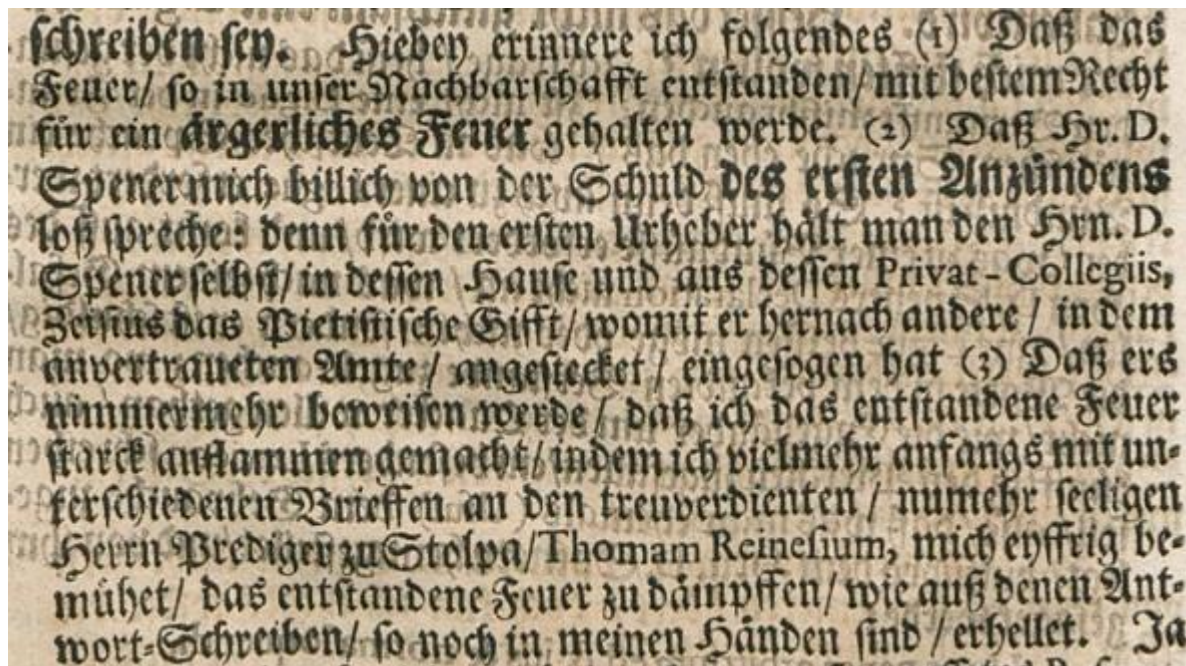 schreiben sey. Hiebey erinnere ich folgendes (1) Daß das
Feuer/ so in unser Nachbarschafft entstanden/ mit bestem Recht
für ein ärgerliches Feuer gehalten werde. (2) Daß Hr. D.
Spener mich billich von der Schuld des ersten Anzündens
loß spreche: denn für den ersten Urheber hält man den Hrn. D.
Spener selbst/ in dessen Hause und aus dessen Privat-Collegiis,
Zeisius das Pietistische Gifft/ womit er hernach andere/ in dem
anvertraueten Amte/ angestecket/ eingesogen hat (3) Daß ers
nimmermehr beweisen werde/ daß ich das entstandene Feuer
starck anflammen gemacht/ indem ich vielmehr anfangs mit un-
terschiedenen Brieffen an den treuverdienten/ numehr seeligen
Herrn Prediger zu Stolpa/ Thomam Reinesium, mich eyffrig be-
mühet/ das entstandene Feuer zu dämpffen/ wie auß denen Ant-
wort-Schreiben/ so noch in meinen Händen sind/ erhellet. Ja